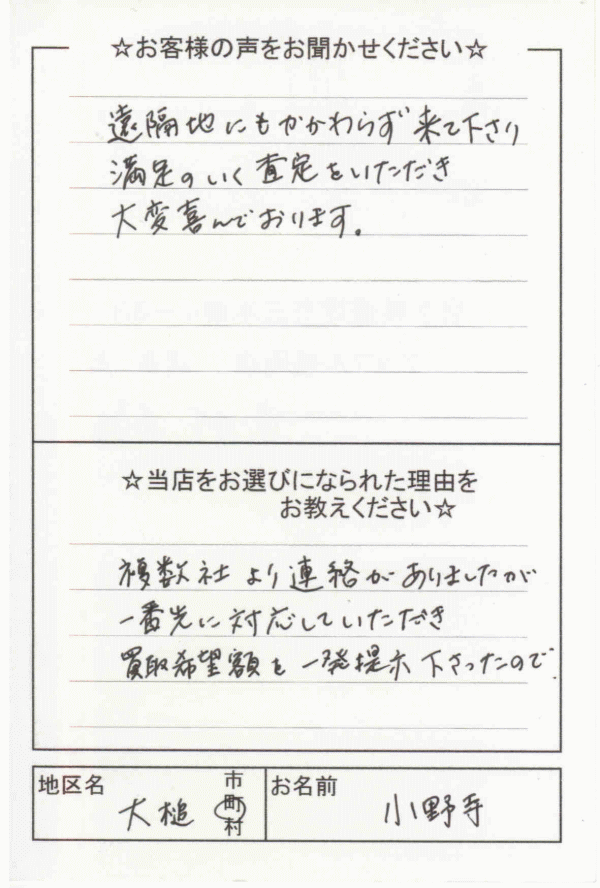 ☆お客様の声をお聞かせください☆
遠隔地にもかかわらず来て下さり
満足のいく査定をいただき
大変喜んでおります。
☆当店をお選びになられた理由を
お教えください☆
複数社より連絡がありましたが
一番先に対応していただき
買取希望額を一発提示下さったので
地区名
大槌
市
町
村
お名前
小野寺